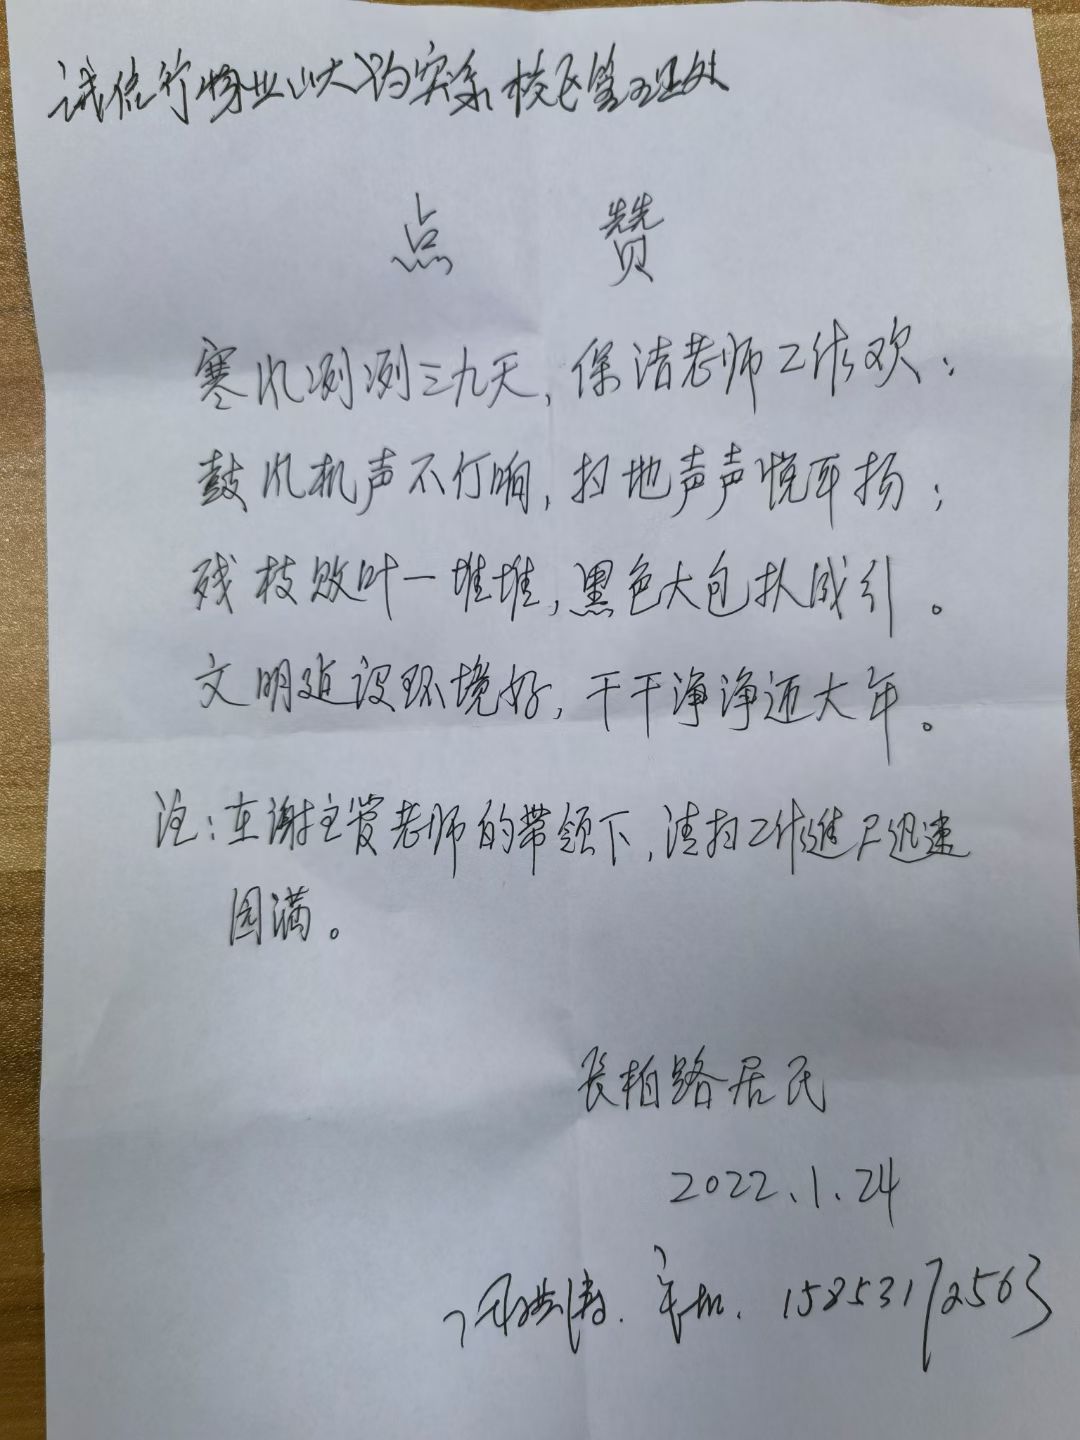 诚信行物业山大兴隆山校区管理处
点 赞
寒风冽冽三九天，保洁老师工作欢；
鼓风机声不停响，扫地声声悦耳扬；
残枝败叶一堆堆，黑色大包排成行。
文明建设环境好，干干净净迎大年。
注：在谢主管老师的带领下，清扫工作进展迅速
圆满。
长柏路居民
2022.1.24
手机. 15853172563